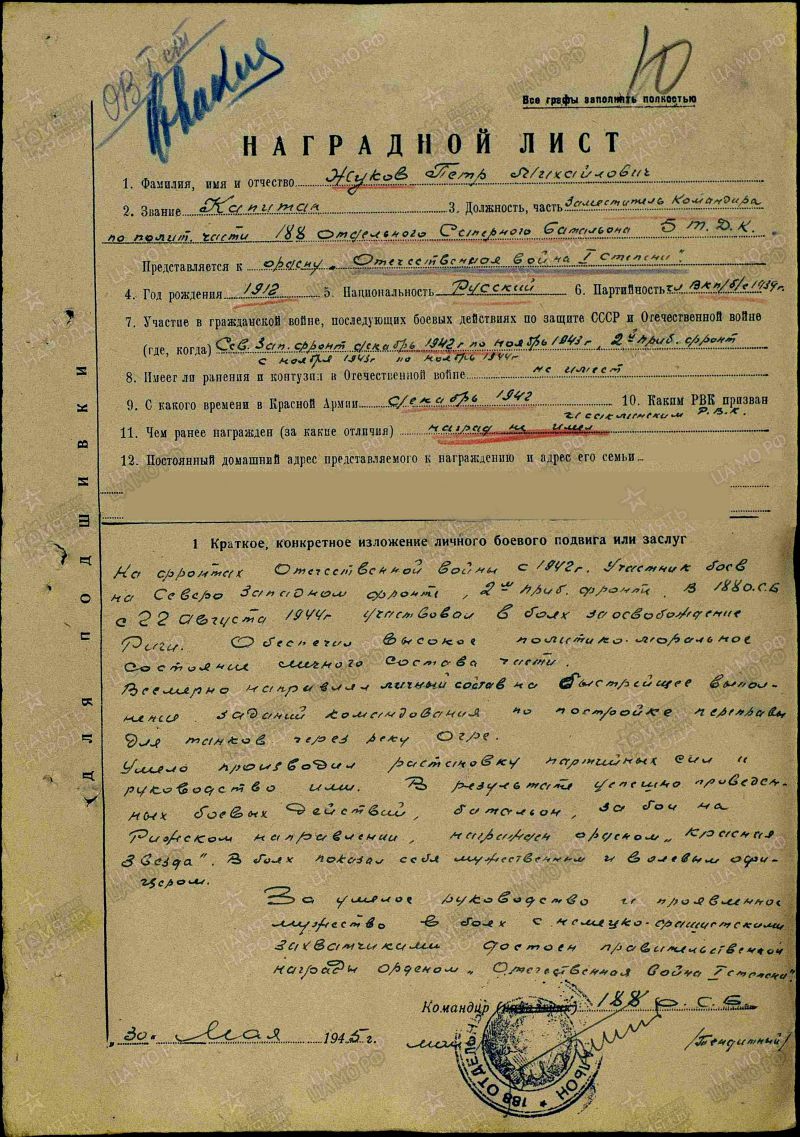 ОВ I ст
10
Все графы заполнять полностью
НАГРАДНОЙ ЛИСТ
1. Фамилия, имя и отчество Жуков Петр Михайлович
2. Звание Капитан 3. Должность, часть Заместитель Командира
по полит. части 188 Отдельного Саперного Батальона 5 Т.Д.К.
Представляется к ордену „Отечественная война I степени"
4. Год рождения 1912 5. Национальность Русский 6. Партийность чл ВКП/б/с 1939г.
7. Участие в гражданской войне, последующих боевых действиях по защите СССР и Отечественной войне
(где, когда) Сев. Зап. фронт декабрь 1942г по ноябрь 1943г, 2й приб. фронт
с ноября 1943г по ноябрь 1944г
8. Имеет ли ранения и контузии в Отечественной войне не имеет
9. С какого времени в Красной Армии декабрь 1942 10. Каким РВК призван
Р.В.К.
11. Чем ранее награжден (за какие отличия) наград не имел
12. Постоянный домашний адрес представляемого к награждению и адрес его семьи
1 Краткое, конкретное изложение личного боевого подвига или заслуг
На фронтах Отечественной Войны с 1942г. Участник боев
на Северо Западном фронте, 2м приб. фронте. В 188 О.С.Б
с 22 августа 1944г участвовал в боях за освобождение
Риги. Обеспечил высокое политико-моральное
состояние личного состава части.
Всемерно направлял личный состав на быстрейшее выпол-
нение заданий командования по постройке переправы
для танков через реку Огре.
Умело производил растановку партийных сил и
руководство ими. В результате успешно проведен-
ных боевых действий, батальон, за бои на
Рижском направлении, награжден орденом „Красная
Звезда". В боях показал себя мужественным и волевым офи-
цером.
За умелое руководство и проявленное
мужество в боях с немецко-фашистскими
захватчиками достоин правительственной
награды орденом „Отечественная Война I степени".
Командир 188 О.С.Б.
„30" Мая 1945 г.
/Тендитный/
188 ОТДЕЛЬН
ДЛЯ ПОДШИВКИ
ПАМЯТЬ НАРОДА
ЦАМО.РФ